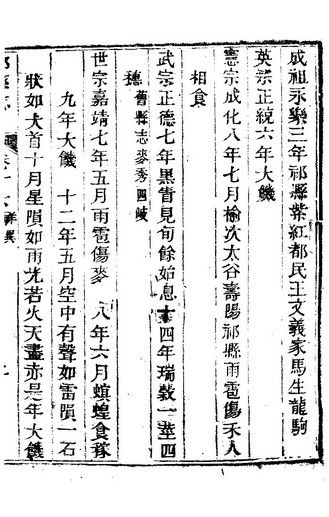 成祖永樂三年祁縣紫紅都民王文義家馬生龍駒
英宗正統六年大饑
憲宗成化八年七月榆次太谷壽陽祁縣雨雹傷禾人
相食
武宗正德七年黑眚見旬餘始息 十四年瑞穀一莖四
穗 舊縣志麥秀四岐
世宗嘉靖七年五月雨雹傷麥 八年六月螟蝗食稼
九年大饑 十二年五月空中有聲如雷隕一石
狀如犬首十月星隕如雨光若火天盡赤是年大饑
祥異